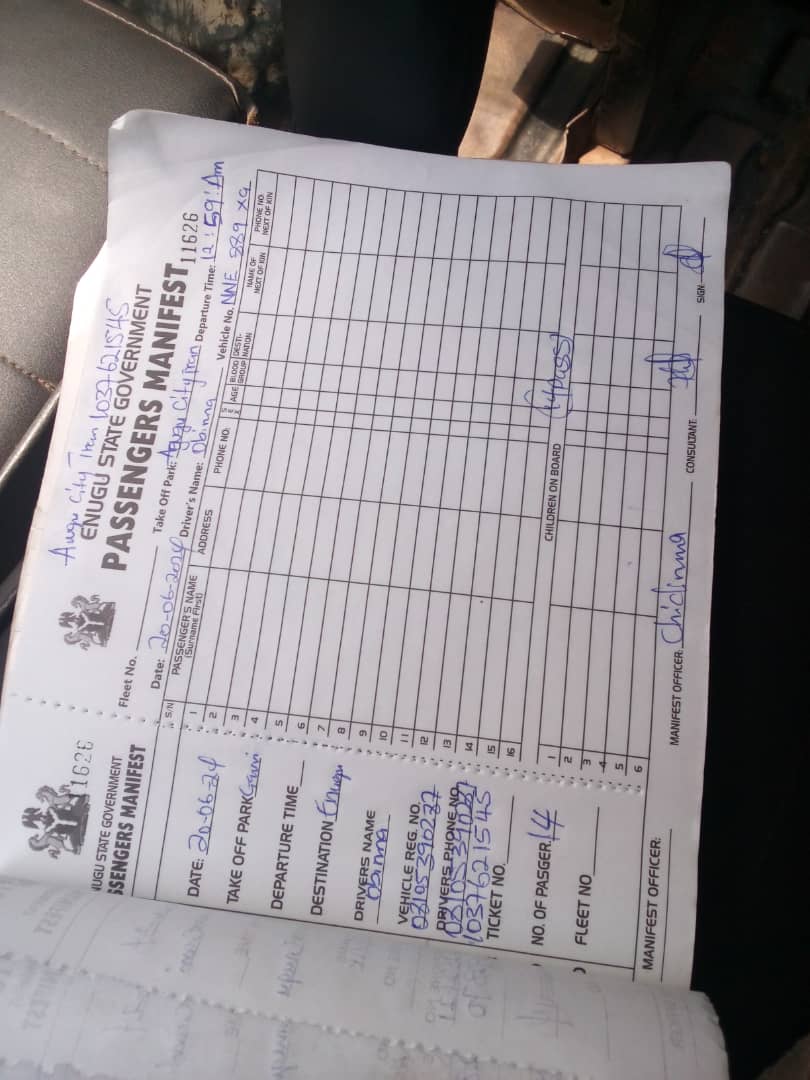 ENUGU STATE GOVERNMENT
PASSENGERS MANIFEST
11626
Fleet No.
Date: 20-06-2024
Take Off Park: City Tran
Departure Time: 12:59:Am
Driver's Name: Obinna
Vehicle No. NNE 889 XA
S/N PASSENGER'S NAME (Surname First) ADDRESS PHONE NO: SEX AGE BLOOD GROUP DESTI-NATION NAME OF NEXT OF KIN PHONE NO. NEXT OF KIN
1
2
3
4
5
6
7
8
9
10
11
12
13
14
15
16
CHILDREN ON BOARD
1
2
3
4
5
6
MANIFEST OFFICER: Chidinma
CONSULTANT:
SIGN:
1626
UGU STATE GOVERNMENT
SSENGERS MANIFEST
DATE: 20-06-24
TAKE OFF PARK
DEPARTURE TIME
DESTINATION Enugu
DRIVERS NAME
Obinna
VEHICLE REG. NO.
DRIVERS PHONE NO.
1037621545
TICKET NO.
NO. OF PASGER. 14
FLEET NO
MANIFEST OFFICER: